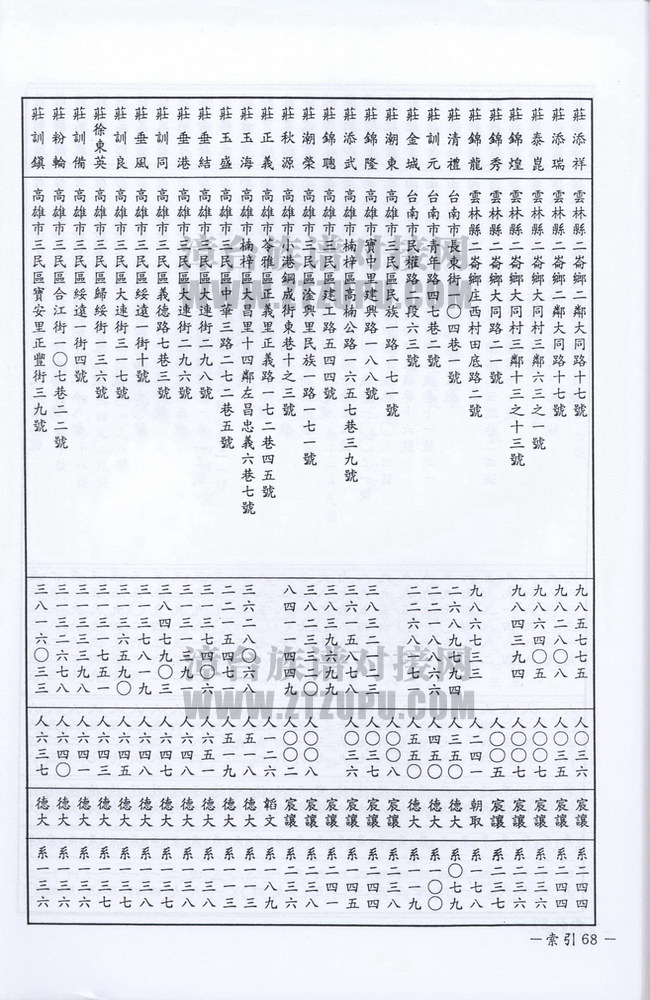 莊添祥 雲林縣二崙鄉二鄰大同路十七號 九八五七七五 人〇三六 宸讓 系二四四
莊添瑞 雲林縣二崙鄉二鄰大同路十七號 九八二〇八五 人〇三五 宸讓 系二四四
莊泰崑 雲林縣二崙鄉大同村三鄰六三之一號 九八六四〇五 人〇〇七 宸讓 系二三六
莊錦煌 雲林縣二崙鄉大同村三鄰十三之十三號 九八四三九四 人〇〇七 宸讓 系二三六
莊錦秀 雲林縣二崙鄉大同路二一號 人〇〇五 宸讓 系二三七
莊錦龍 雲林縣二崙鄉庄西村田底路二號 九八六七三三 人二四一 朝取 系一七八
莊清禮 台南市長東街一〇四巷一號 二六八九九九四 人三五〇 德大 系〇七九
莊訓元 台南市青年路四七巷二號 二二一八八六六 人四五〇 德大 系一〇〇
莊金城 台南市民權路二段六三號 二六六八七七一 人五五〇 德大 系一一九
莊潮東 高雄市三民區民族一路一七一號 人〇〇八 宸讓 系二三八
莊錦隆 高雄市寶中里建興路一八八號 三八三二一二三 人〇三七 宸讓 系二四四
莊添武 高雄市楠梓區高楠公路一六五七巷三九號 三六一五七八八 人〇三六 宸讓 系二四五
莊錦聰 高雄市三民區建工路五四四號 三八三九六九九 宸讓 系二四一
莊潮榮 高雄市三民區淦興里民族一路一七一號 人〇〇八 宸讓 系二三八
莊秋源 高雄市小港鋼成街東巷十之三號 八四一一四四九 人〇〇二 宸讓 系二三六
莊正義 高雄市苓雅區正義里正義路一七二巷四五號 人一二六 韜文 系一八九
莊玉海 高雄市楠梓區大昌里十四鄰左昌忠義六巷七號 三六二八〇六八 人五一八 德大 系一一三
莊玉盛 高雄市三民區中華三路二七二巷五號 二二一五四七七 人五一九 德大 系一一三
莊垂結 高雄市三民區大連街二九八號 三一三七四〇六 人六五一 德大 系一三八
莊垂港 高雄市三民區大連街二九六號 三一三一三九一 人六四八 德大 系一三八
莊訓同 高雄市三民區義德路七巷三號 人六四七 德大 系一三七
莊垂風 高雄市三民區綏遠一街十號 三一三七八一九 人六四八 德大 系一三八
莊訓良 高雄市三民區大連街三一七號 三一三六五九〇 人六四五 德大 系一三七
莊徐東英 高雄市三民區歸綏街一三六號 三一三一七五一 人六四三 德大 系一三六
莊訓備 高雄市三民區綏遠一街四號 三一三三三九八 人六四一 德大 系一三六
莊粉輪 高雄市三民區合江街一〇七巷二二號 三一三二六七八 人六四〇 德大 系一三六
莊訓鎮 高雄市三民區寶安里正豐街三九號 三八一六〇三三 人六三七 德大 系一三六
漳台族谱对接网
WWW.ZTZUPU.COM
漳台族谱对接网
WWW.ZTZUPU.COM
—索引68—